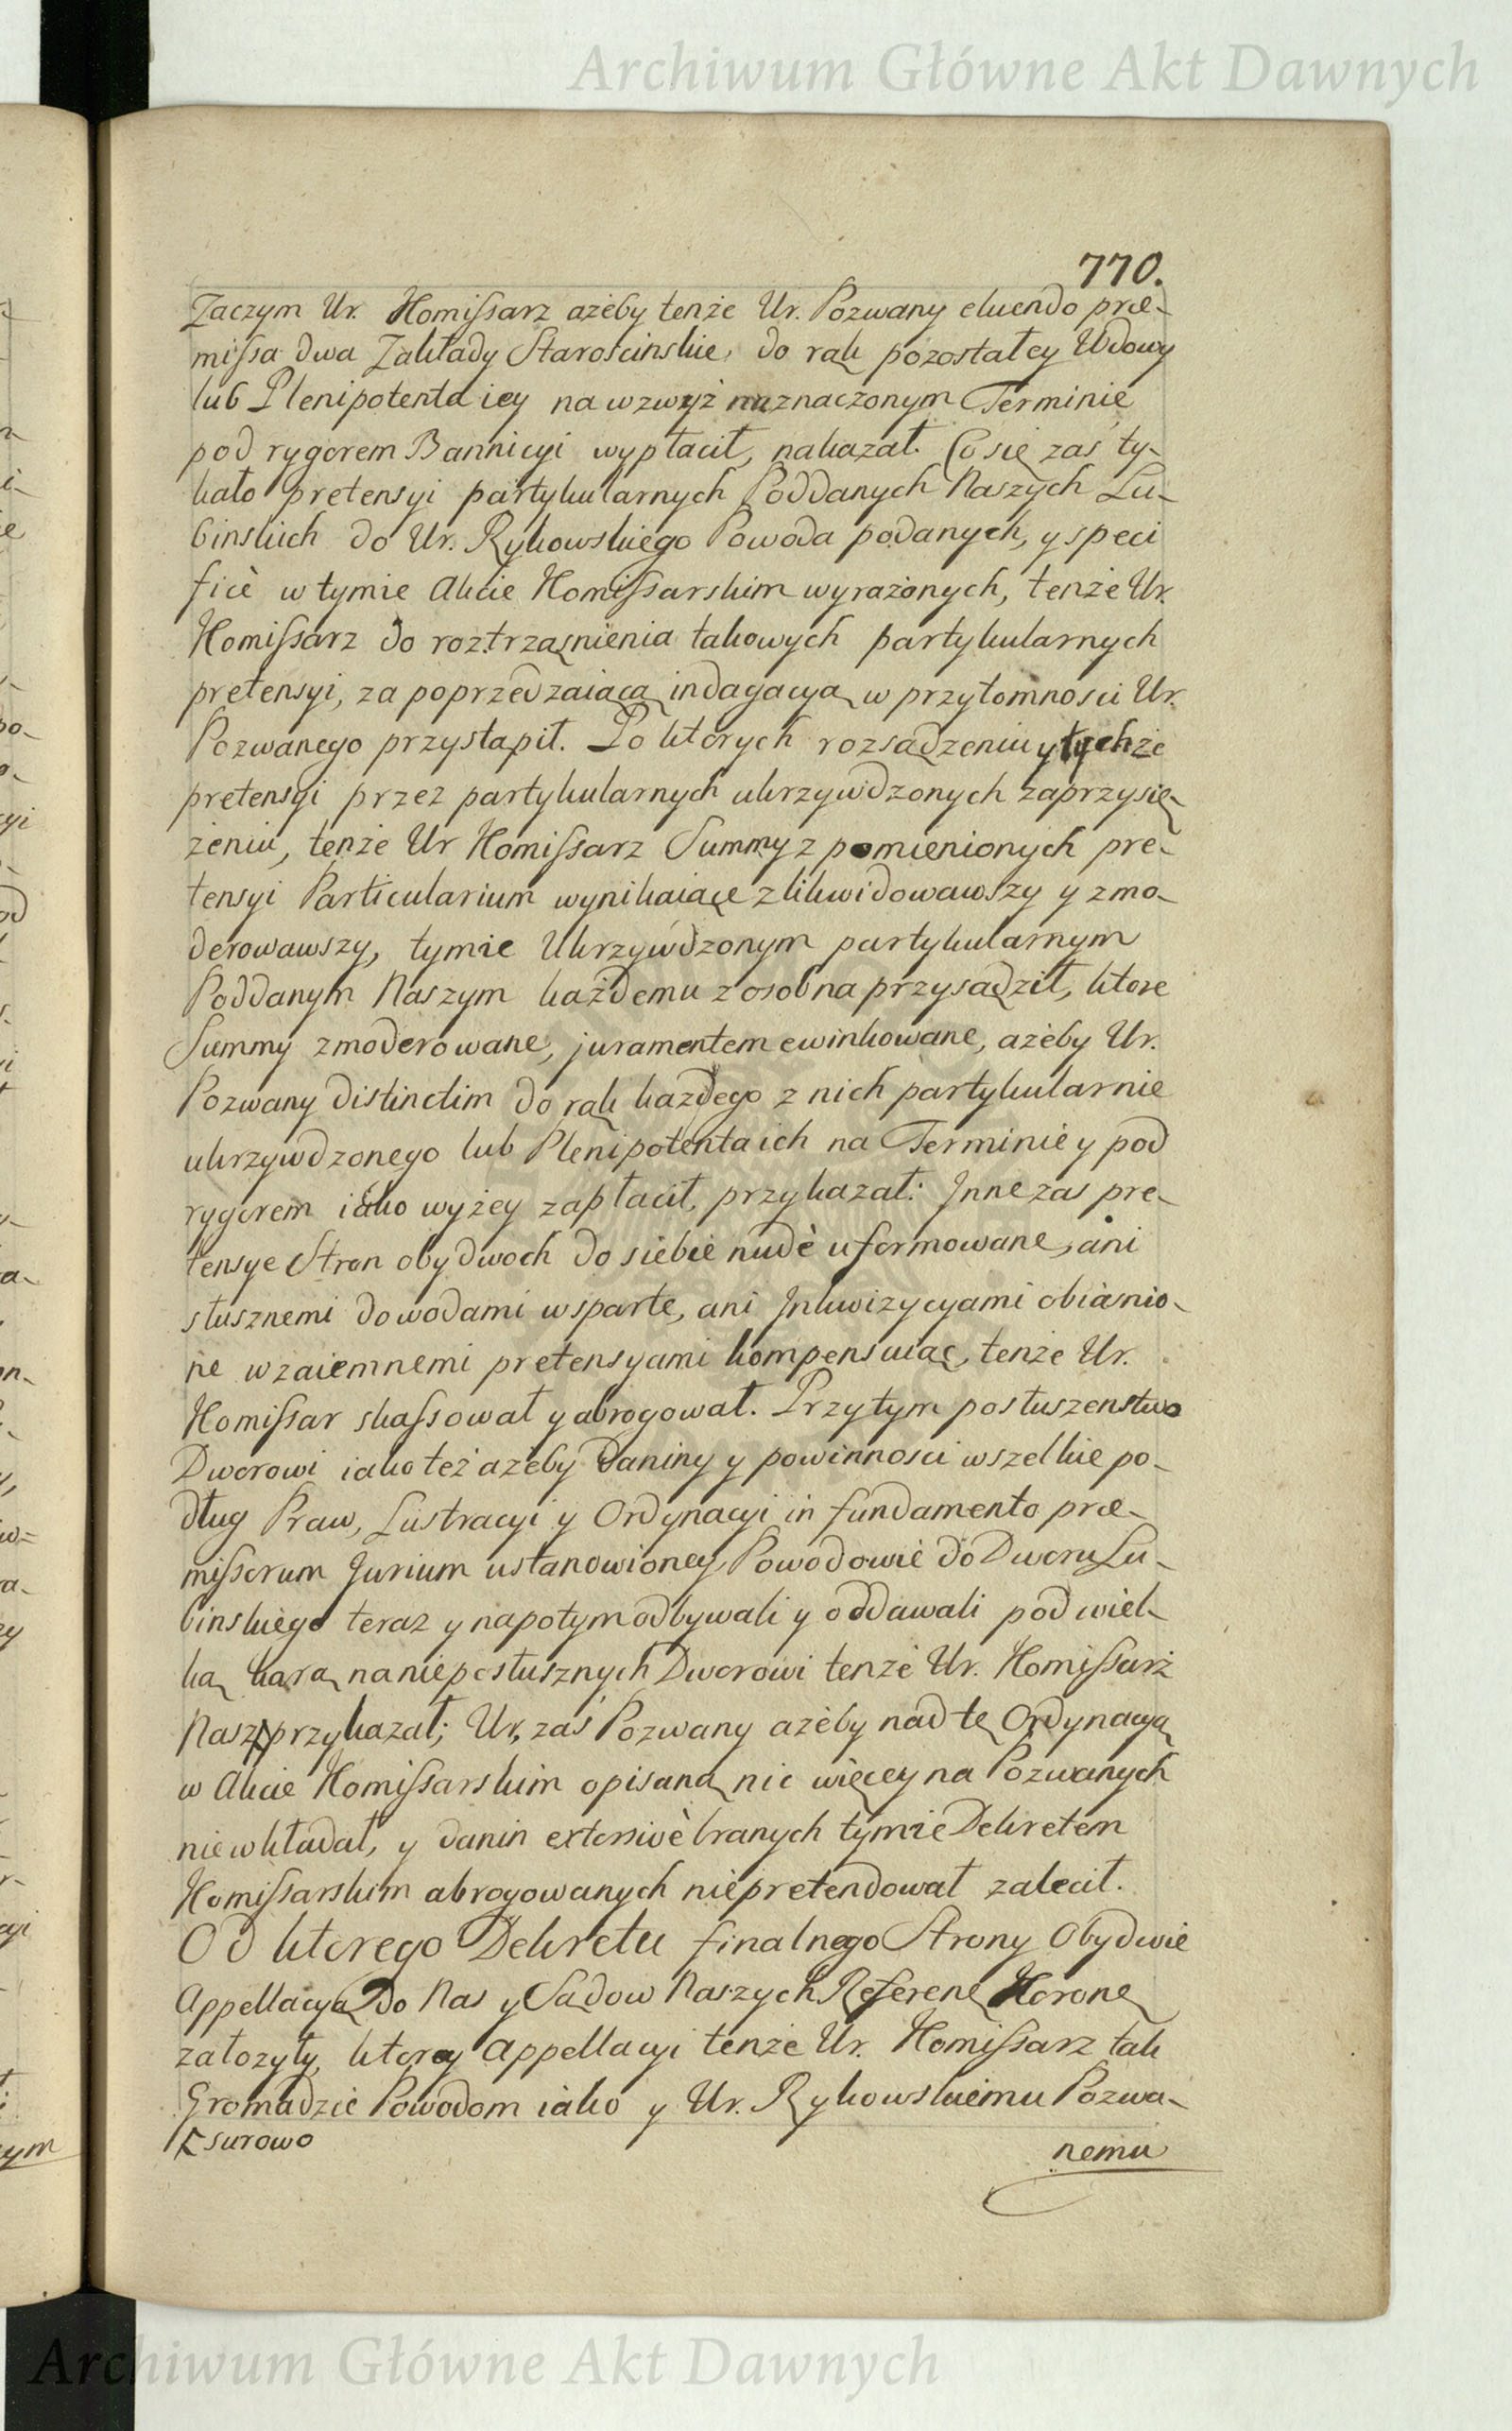 Archiwum Główne Akt Dawnych
770.
Zaczym Ur. Komissarz ażeby tenże Ur. Pozwany eluendo præ-
missa dwa Zakłady Starościnskie, do rąk pozostałey Wdowy
lub Plenipotenta iey na wzwyż naznaczonym Terminie
pod rygorem Bannicyi wypłacił, nakazał. Co się zaś ty-
kało pretensyi partykularnych Poddanych Naszych Lu-
binskich do Ur. Rykowskiego Powoda podanych, y speci
ficè w tymże Akcie Komissarskim wyrażonych, tenże Ur.
Komissarz do roztrząsnienia takowych partykularnych
pretensyi, za poprzedzaiącą indagacyą w przytomnosci Ur.
Pozwanego przystąpił. Po ktorych rozsądzeniu y tychże
pretensyi przez partykularnych ukrzywdzonych zaprzysię-
żeniu, tenże Ur Komissarz Summy z pomienionych pre-
tensyi Particularium wynikaiące zlikwidowawszy y zmo-
derowawszy, tymże Ukrzywdzonym partykularnym
Poddanym Naszym każdemu z osobna przysądził, ktore
Summy zmoderowane, juramentem ewinkowane, ażeby Ur.
Pozwany distinctim do rąk każdego z nich partykularnie
ukrzywdzonego lub Plenipotenta ich na Terminie y pod
rygorem iako wyżey zapłacił, przykazał: Inne zas pre-
tensye Stron obydwoch do siebie nudè uformowane, ani
słusznemi dowodami wsparte, ani Inkwizycyami obiasnio-
ne wzaiemnemi pretensyami kompensuiąc, tenże Ur.
Komissar skassował y abrogował. Przytym posłuszenstwo
Dworowi iako też ażeby Daniny y powinnosci wszelkie po-
dług Praw, Lustracyi y Ordynacyi in fundamento præ-
missorum Jurium ustanowioney Powodowie do Dworu Lu-
binskiego teraz y napotym odbywali y oddawali pod wiel-
ką karą na nieposłusznych Dworowi tenże Ur. Komissarz
Nasz przykazał; Ur. zaś Pozwany ażeby nad tę Ordynacyą
w Akcie Komissarskim opisaną nic więcey na Pozwanych
nie wkładał, y danin extensivè branych tymże Dekretem
Komissarskim abrogowanych niepretendował zalecił.
Od ktorego Dekretu finalnego Strony Obydwie
Appellacyą Do Nas y Sądow Naszych Referen Koron
założyły, ktorey Appellacyi tenże Ur. Komissarz tak
Gromadzie Powodom iako y Ur. Rykowskiemu Pozwa-
surowo
nemu
Archiwum Główne Akt Dawnych